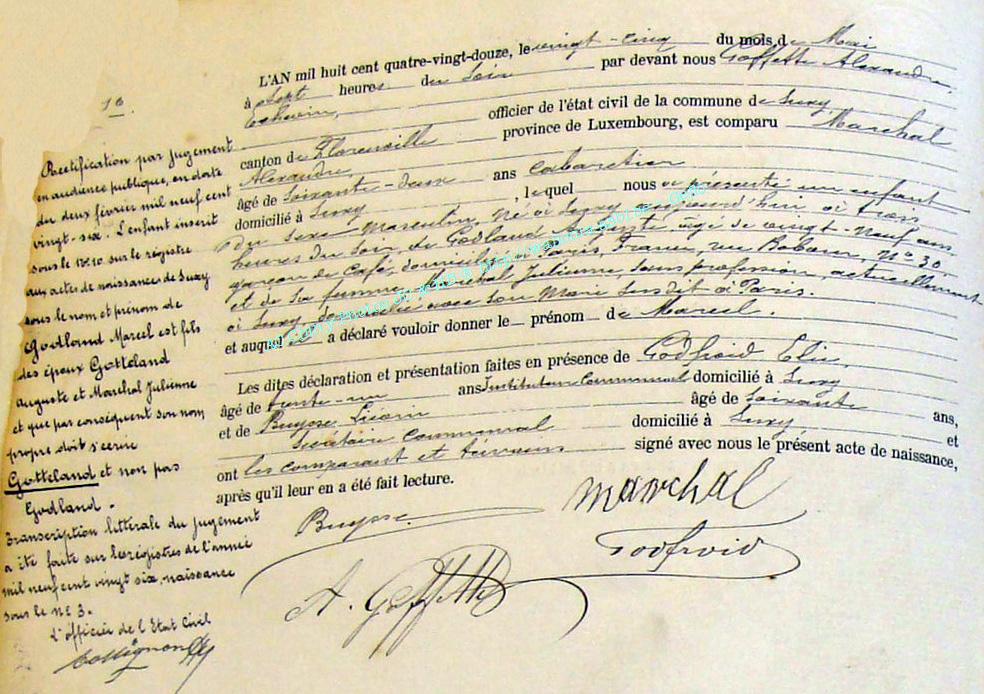 10
Rectification par jugement
en audience publique, en date
du deux février mil neuf cent
vingt-six. L'enfant inscrit
sous le N° 10 sur le registre
aux actes de naissance de Suxy
sous le nom et prénom de
Godland Marcel est fils
des époux Gotteland
Auguste et Marchal Julienne
et que par conséquent son nom
propre doit s'écrire
Gotteland et non pas
Godland.
Transcription littérale du jugement
a été faite sur les registres de l'année
mil neuf cent vingt six, naissance
sous le N° 3.
L'officier de l'Etat Civil
L'AN mil huit cent quatre-vingt-douze, le vingt-cinq du mois de Mai
à Sept heures du Soir par devant nous Goffette Alexandre
Echevin, officier de l'état civil de la commune de Suxy
canton de Florenville province de Luxembourg, est comparu Marchal
Alexandre,
âgé de Soixante-deux ans Cabaretier
domicilié à Suxy, lequel nous a présenté un enfant
du sexe Masculin, né à Suxy aujourd'hui à trois
heures du Soir, de Godland Auguste, âgé de vingt-neuf ans
garçon de café, domicilié à Paris, France, rue N° 30
et de sa femme, Marchal Julienne, sans profession actuellement
à Suxy, domiciliée avec son Mari Susdit à Paris.
et auquel il a déclaré vouloir donner le prénom de Marcel.
Les dites déclaration et présentation faites en présence de Godfroid Elie,
âgé de trente-un ans Instituteur Communal domicilié à Suxy
et de Buysse âgé de Soixante ans,
Secrétaire Communal domicilié à Suxy et
ont les comparant et témoins signé avec nous le présent acte de naissance,
après qu'il leur en a été fait lecture.
Buysse
marchal
Godfroid
A. Goffette